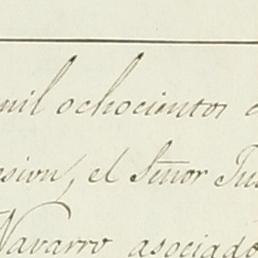 mil ochocientos
esion, el Señor
Navarro asociado